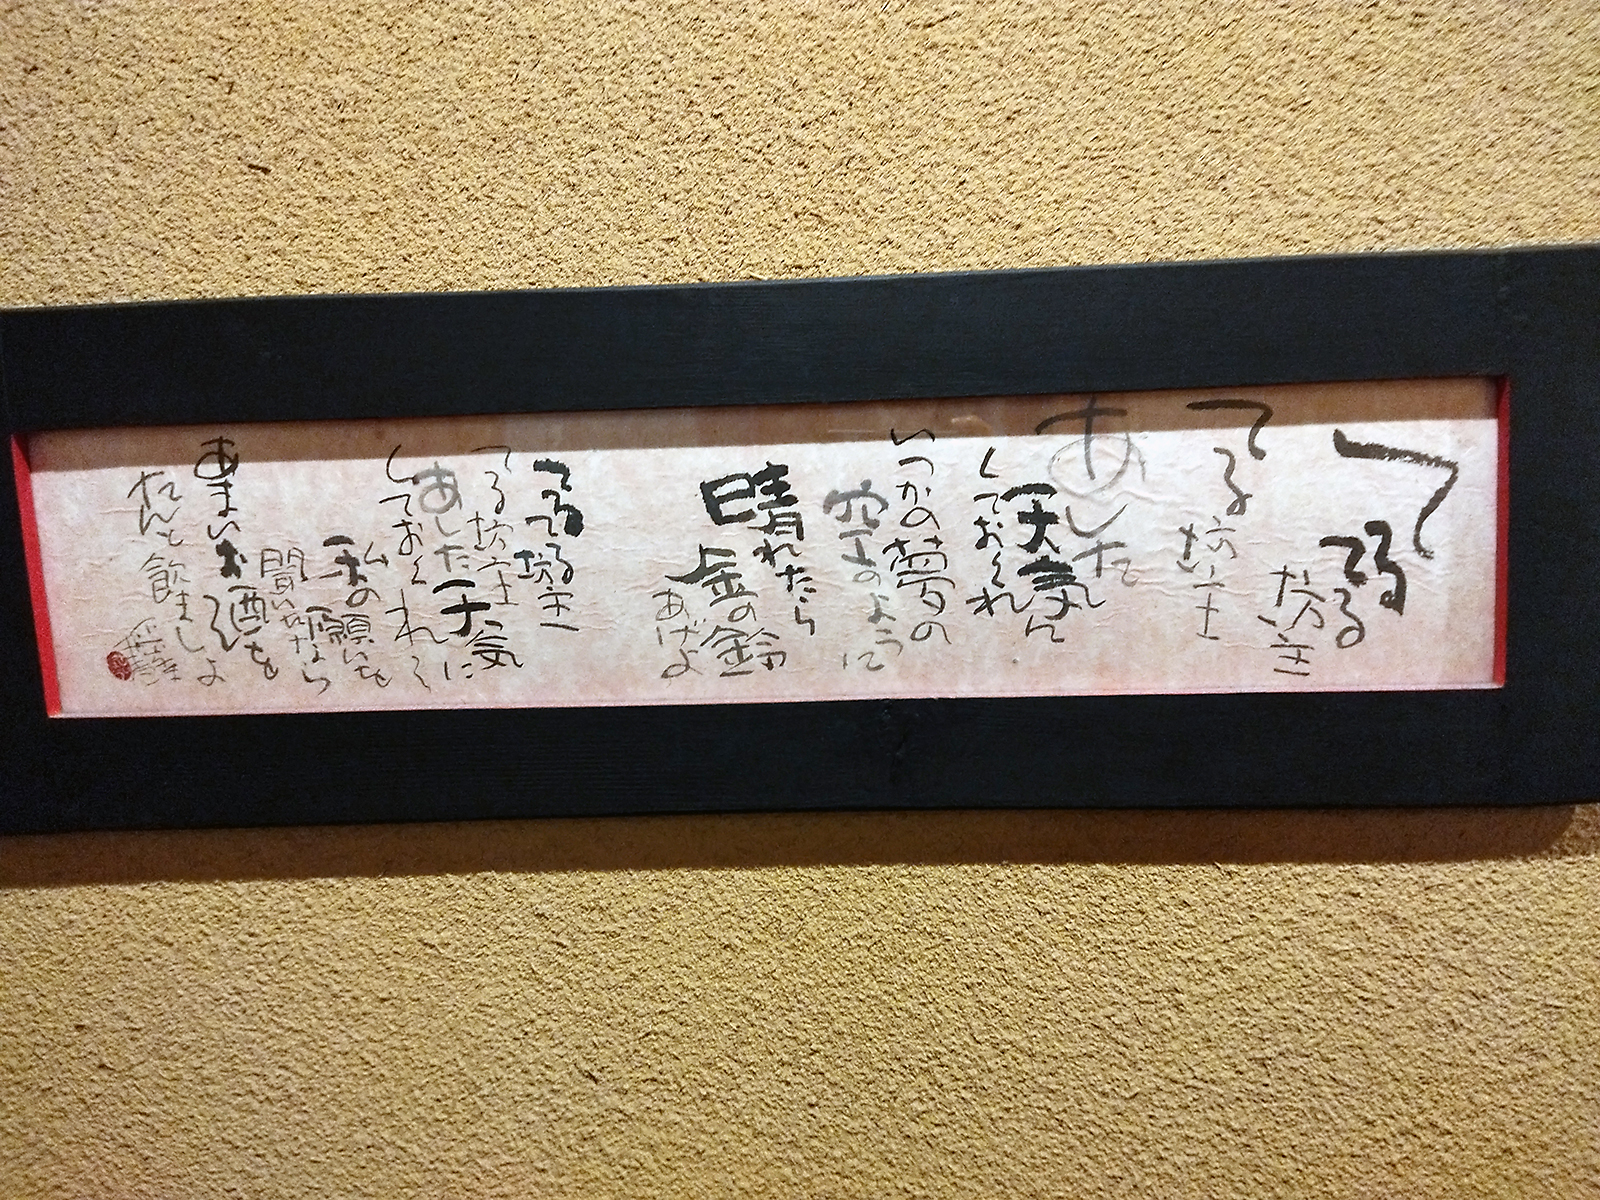 てるてる坊主
てる坊主
あした
天気に
しておくれ
いつかの夢の
空のように
晴れたら
金の鈴
あげよ
てるてる坊主
てる坊主
あした天気に
しておくれ
私の願いを
聞いたなら
あまいお酒を
たんと飲ましょ